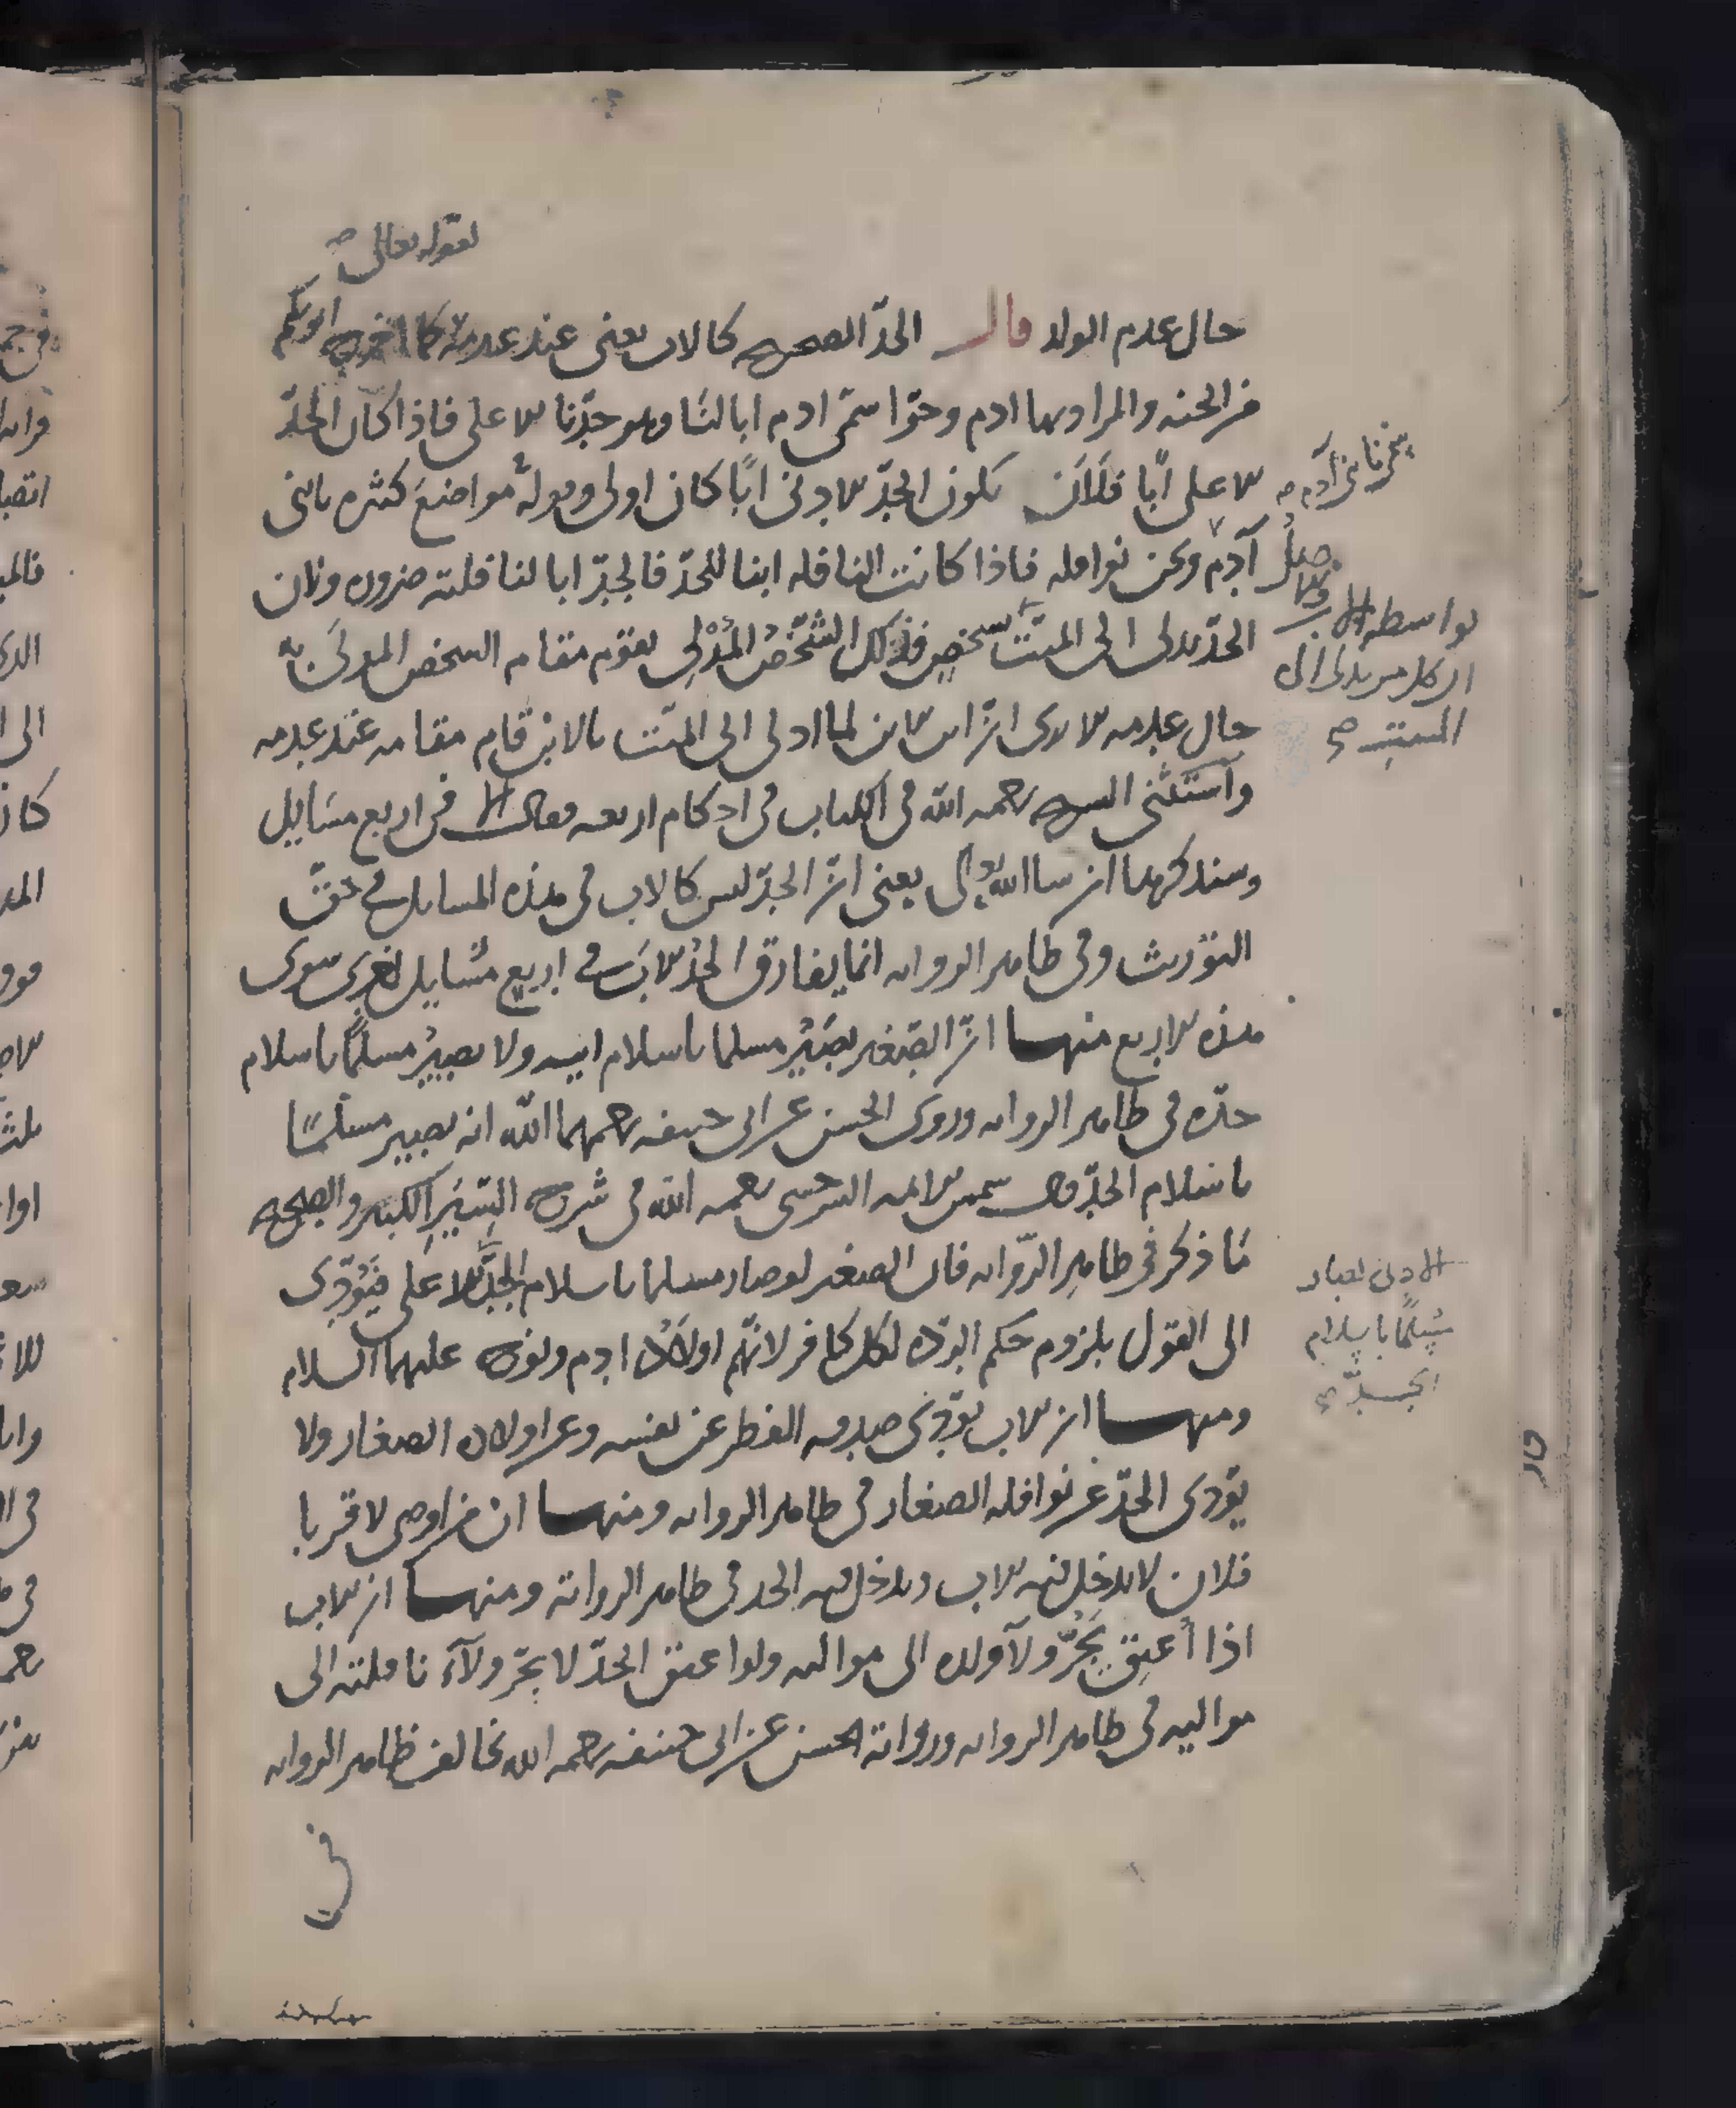 لقوله تعالى صح
حال عدم الولد قال الجد الصحيح كالاب يعنى عند عدمه كما اخرج ابويكم
من الجنة والمراد بهما ادم وحوا سمى ادم ابا لنا وهو جدنا الاعلى فاذا كان الجد
الاعلى أبا فلأن يكون الجد الادنى ابًا كان اولى وقوله فى مواضع كثيرة يا بنى
يخبرنا بنى آدم صح
آدم ونحن نوافله فاذا كانت النافلة ابنا للجد فالجد ابا لنافلته ضرورة ولان
الجد يدلى الى الميت بشخص فذلك الشخص المُدْلِى يقوم مقام الشخص المدلى به
بواسطة
ان كل من يدلى الى
الميت صح
حال عدمه الا يرى ان ابن الابن لما ادلى الى الميت بالابن قام مقامه عند عدمه
واستثنى الشيخ رحمه الله فى الكتاب فى احكام اربعة فقال الا فى اربع مسايل
وسنذكرها ان شا الله تعالى يعنى ان الجد ليس كالاب فى هذه المسايل فى حق
التوريث وفى ظاهر الرواية انما يفارق الجد الاب فى اربع مسايل اخرى سوى
هذه الاربع منها ان الصغير يصير مسلما باسلام ابيه ولا يصير مسلمًا باسلام
جده فى ظاهر الرواية وروى الحسن عن ابى حنيفة رحمهما الله انه يصير مسلمًا
باسلام الجد قال شمس الايمة السرخسى رحمه الله فى شرح السير الكبير والصحيح
ما ذكر فى ظاهر الرواية فان الصغير لو صار مسلما باسلام الجد الاعلى فيؤدى
الادنى لصار
مسلمًا باسلام
الجد صح
الى القول بلزوم حكم الردة لكل كافر لانهم اولاد ادم ونوح عليهما السلام
ومنها ان الاب يؤدى صدقة الفطر عن نفسه وعن اولاده الصغار ولا
يؤدى الجد عن نوافله الصغار فى ظاهر الرواية ومنها ان من اوصى لاقربا
فلان لا يدخل فيه الاب ويدخل فيه الجد فى ظاهر الرواية ومنها ان الاب
اذا أعتق يجرّ ولآ ولده الى مواليه ولو اعتق الجد لا يجرّ ولآء نافلته الى
مواليه فى ظاهر الرواية ورواية الحسن عن ابى حنيفة رحمه الله تخالف ظاهر الرواية
فى